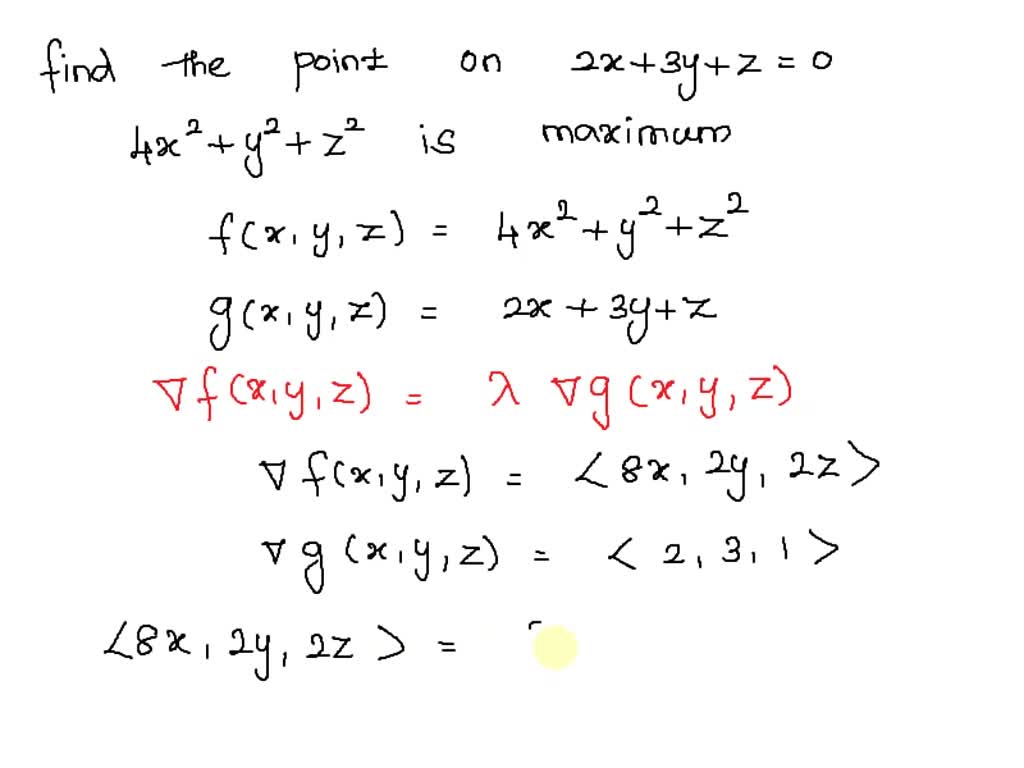 find the point on 2x+3y+z=0
4x²+y²+z² is maximum
f(x,y,z) = 4x²+y²+z²
g(x,y,z) = 2x+3y+z
∇f(x,y,z) = λ ∇g(x,y,z)
∇f(x,y,z) = <8x, 2y, 2z>
∇g(x,y,z) = <2,3,1>
<8x, 2y, 2z> =